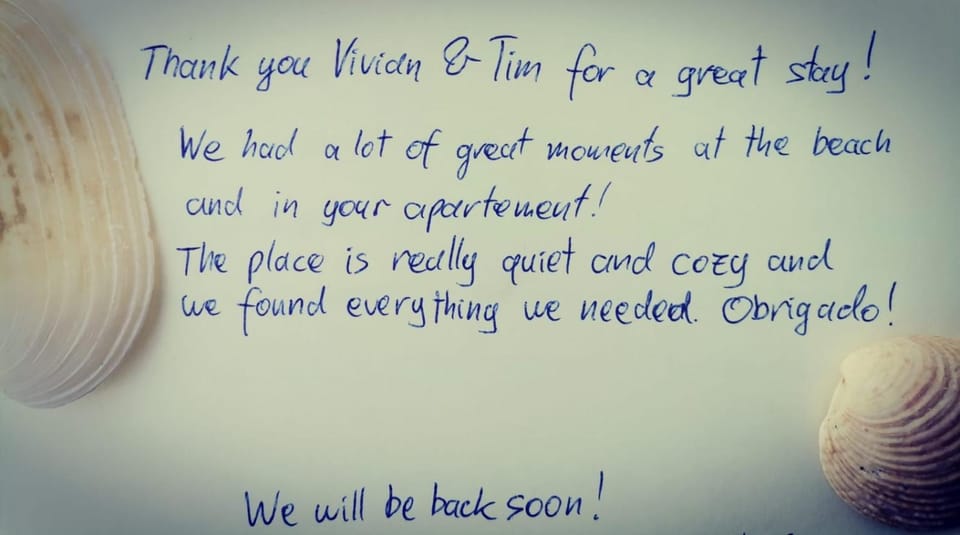 Thank you Vivian & Tim for a great stay!
We had a lot of great moments at the beach
and in your apartement!
The place is really quiet and cozy and
we found everything we needed. Obrigado!
We will be back soon!